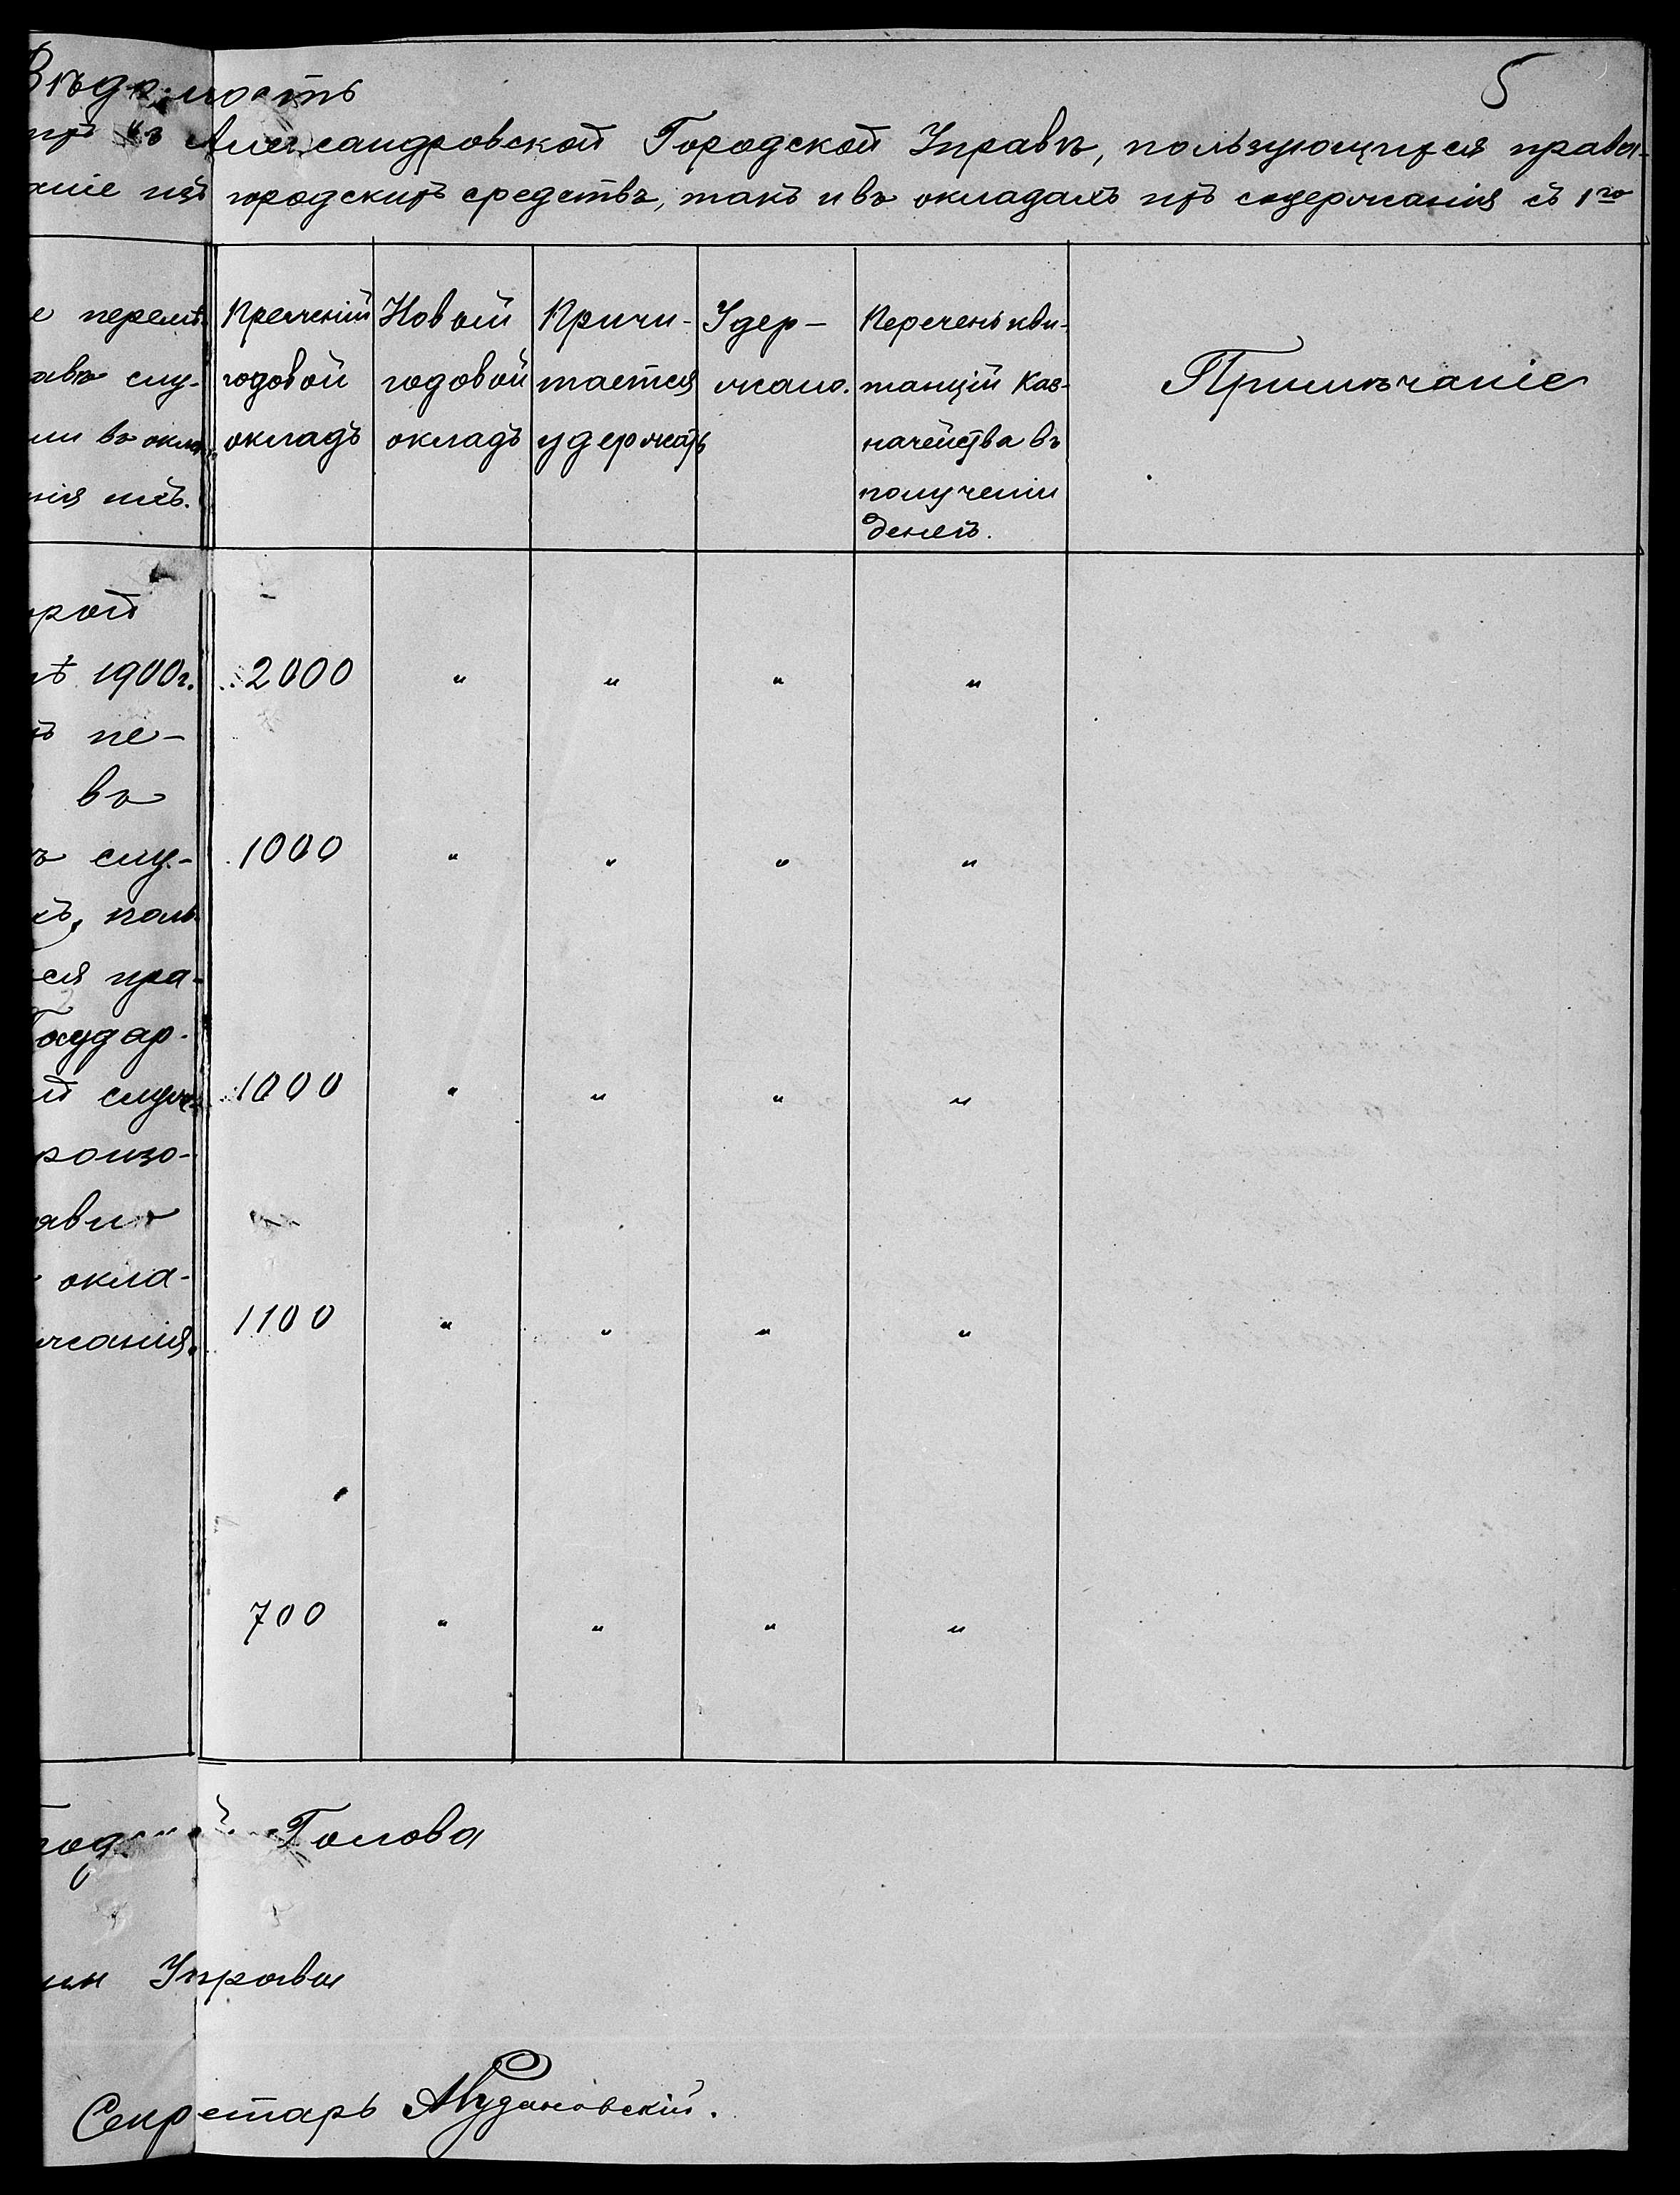 5
Вѣдомость
въ Александровской Городской Управѣ, пользующихся права-
аніе изъ городскихъ средствъ, такъ и въ окладахъ ихъ содержанія съ 1го
е перемѣ-
авѣ слу-
или въ окла-
нія ихъ.
Прежній годовой окладъ
Новый годовой окладъ
Причи-
тается
удержать
Удер-
жано.
Перечень кви-
танцій Каз-
начейства въ
полученіи
денегъ.
Примѣчаніе
рой
1900г. 2000 " " " "
пе-
въ
слу- 1000 " " " "
хъ, поль-
ся пра-
Государ-
ой служ- 1000 " " " "
роизо-
окла-
жанія. 1100 " " " "
700 " " " "
Голова
Управы
Секретарь